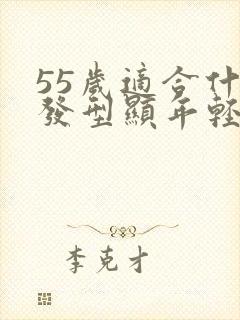 55歲適合什
發型顯年輕
李克才